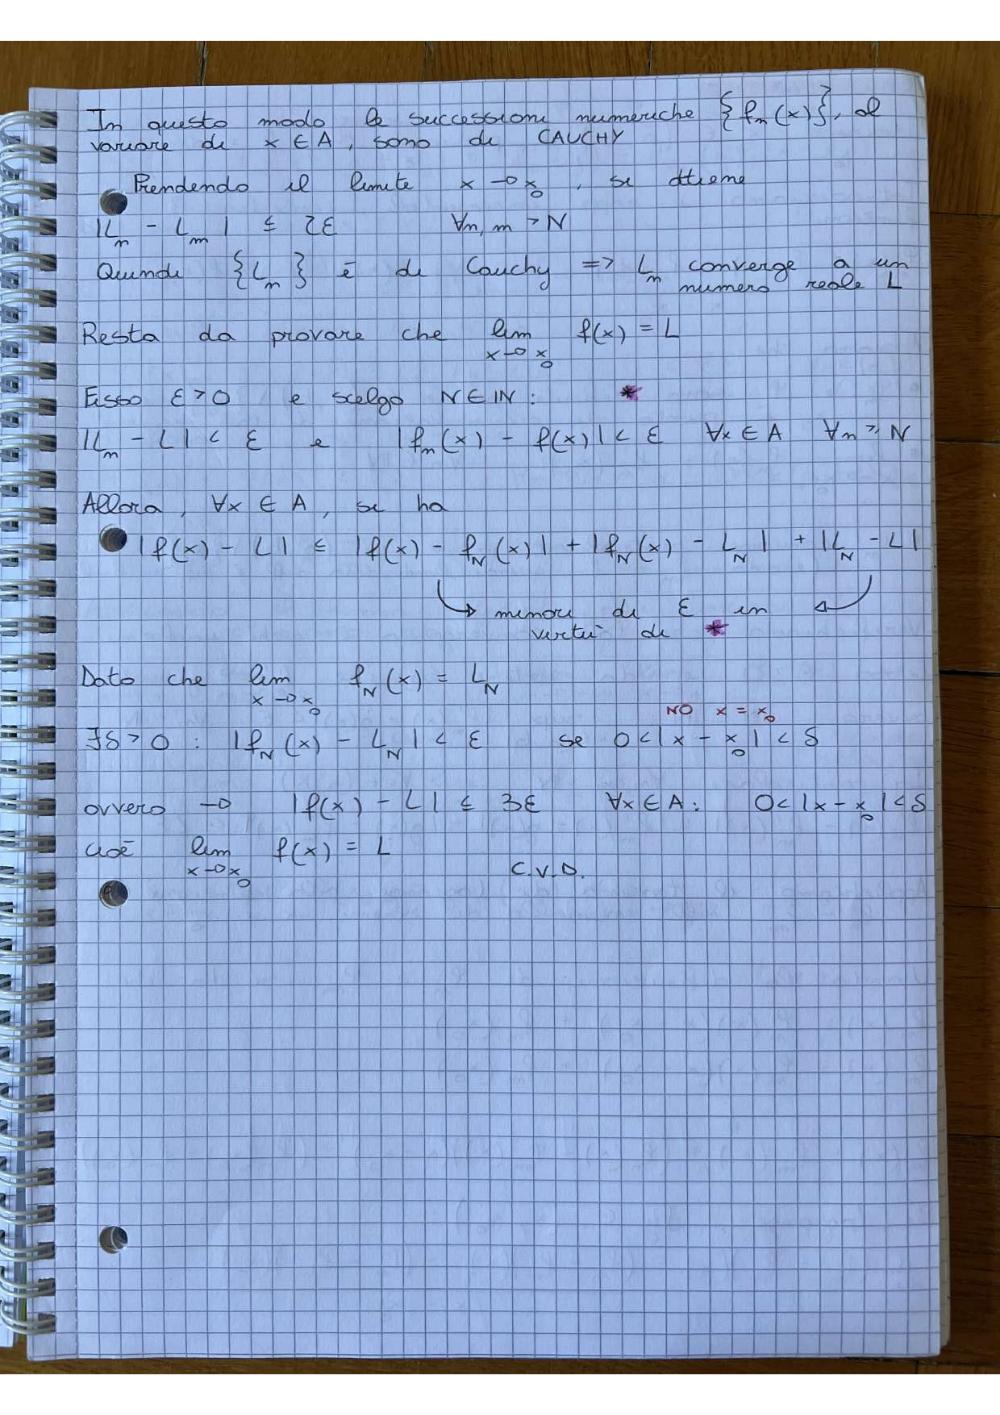 In questo modo le successioni numeriche {fₙ(x)}, al
variare di x ∈ A, sono di CAUCHY
Prendendo il limite x → x₀, si ottiene
|Lₙ - Lₘ| ≤ 2ε ∀n, m > N
Quindi {Lₙ} è di Cauchy => Lₙ converge a un
numero reale L
Resta da provare che lim f(x) = L
x → x₀
Fisso ε > 0 e scelgo N ∈ ℕ : *
|Lₙ - L| < ε e |fₙ(x) - f(x)| < ε ∀x ∈ A ∀n ≥ N
Allora, ∀x ∈ A, si ha
|f(x) - L| ≤ |f(x) - f_N(x)| + |f_N(x) - L_N| + |L_N - L|
minori di ε in
virtù di *
Dato che lim f_N(x) = L_N
x → x₀
NO x = x₀
∃δ > 0 : |f_N(x) - L_N| < ε se 0 < |x - x₀| < δ
ovvero → |f(x) - L| ≤ 3ε ∀x ∈ A : 0 < |x - x₀| < δ
cioè lim f(x) = L
x → x₀ C.V.D.